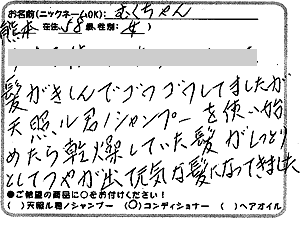 お名前(ニックネームOK):むくちゃん
熊本 在住 58 歳、性別:女)
髪がきしんでゴワゴワしてましたが
天照ル君ノシャンプーを使い始
めたら乾燥していた髪がしっとり
としてつやが出て元気な髪になってきました
●ご希望の商品に○をお付けください
( )天照ル君ノシャンプー (○)コンディショナー ( )ヘアオイル